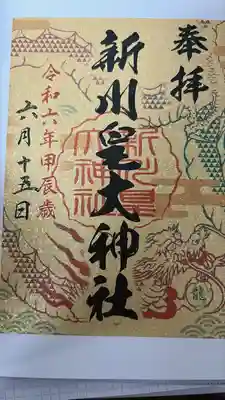 奉拝
新川皇大神社
令和六年甲辰歳
六月十五日
新川皇
大神社
龍